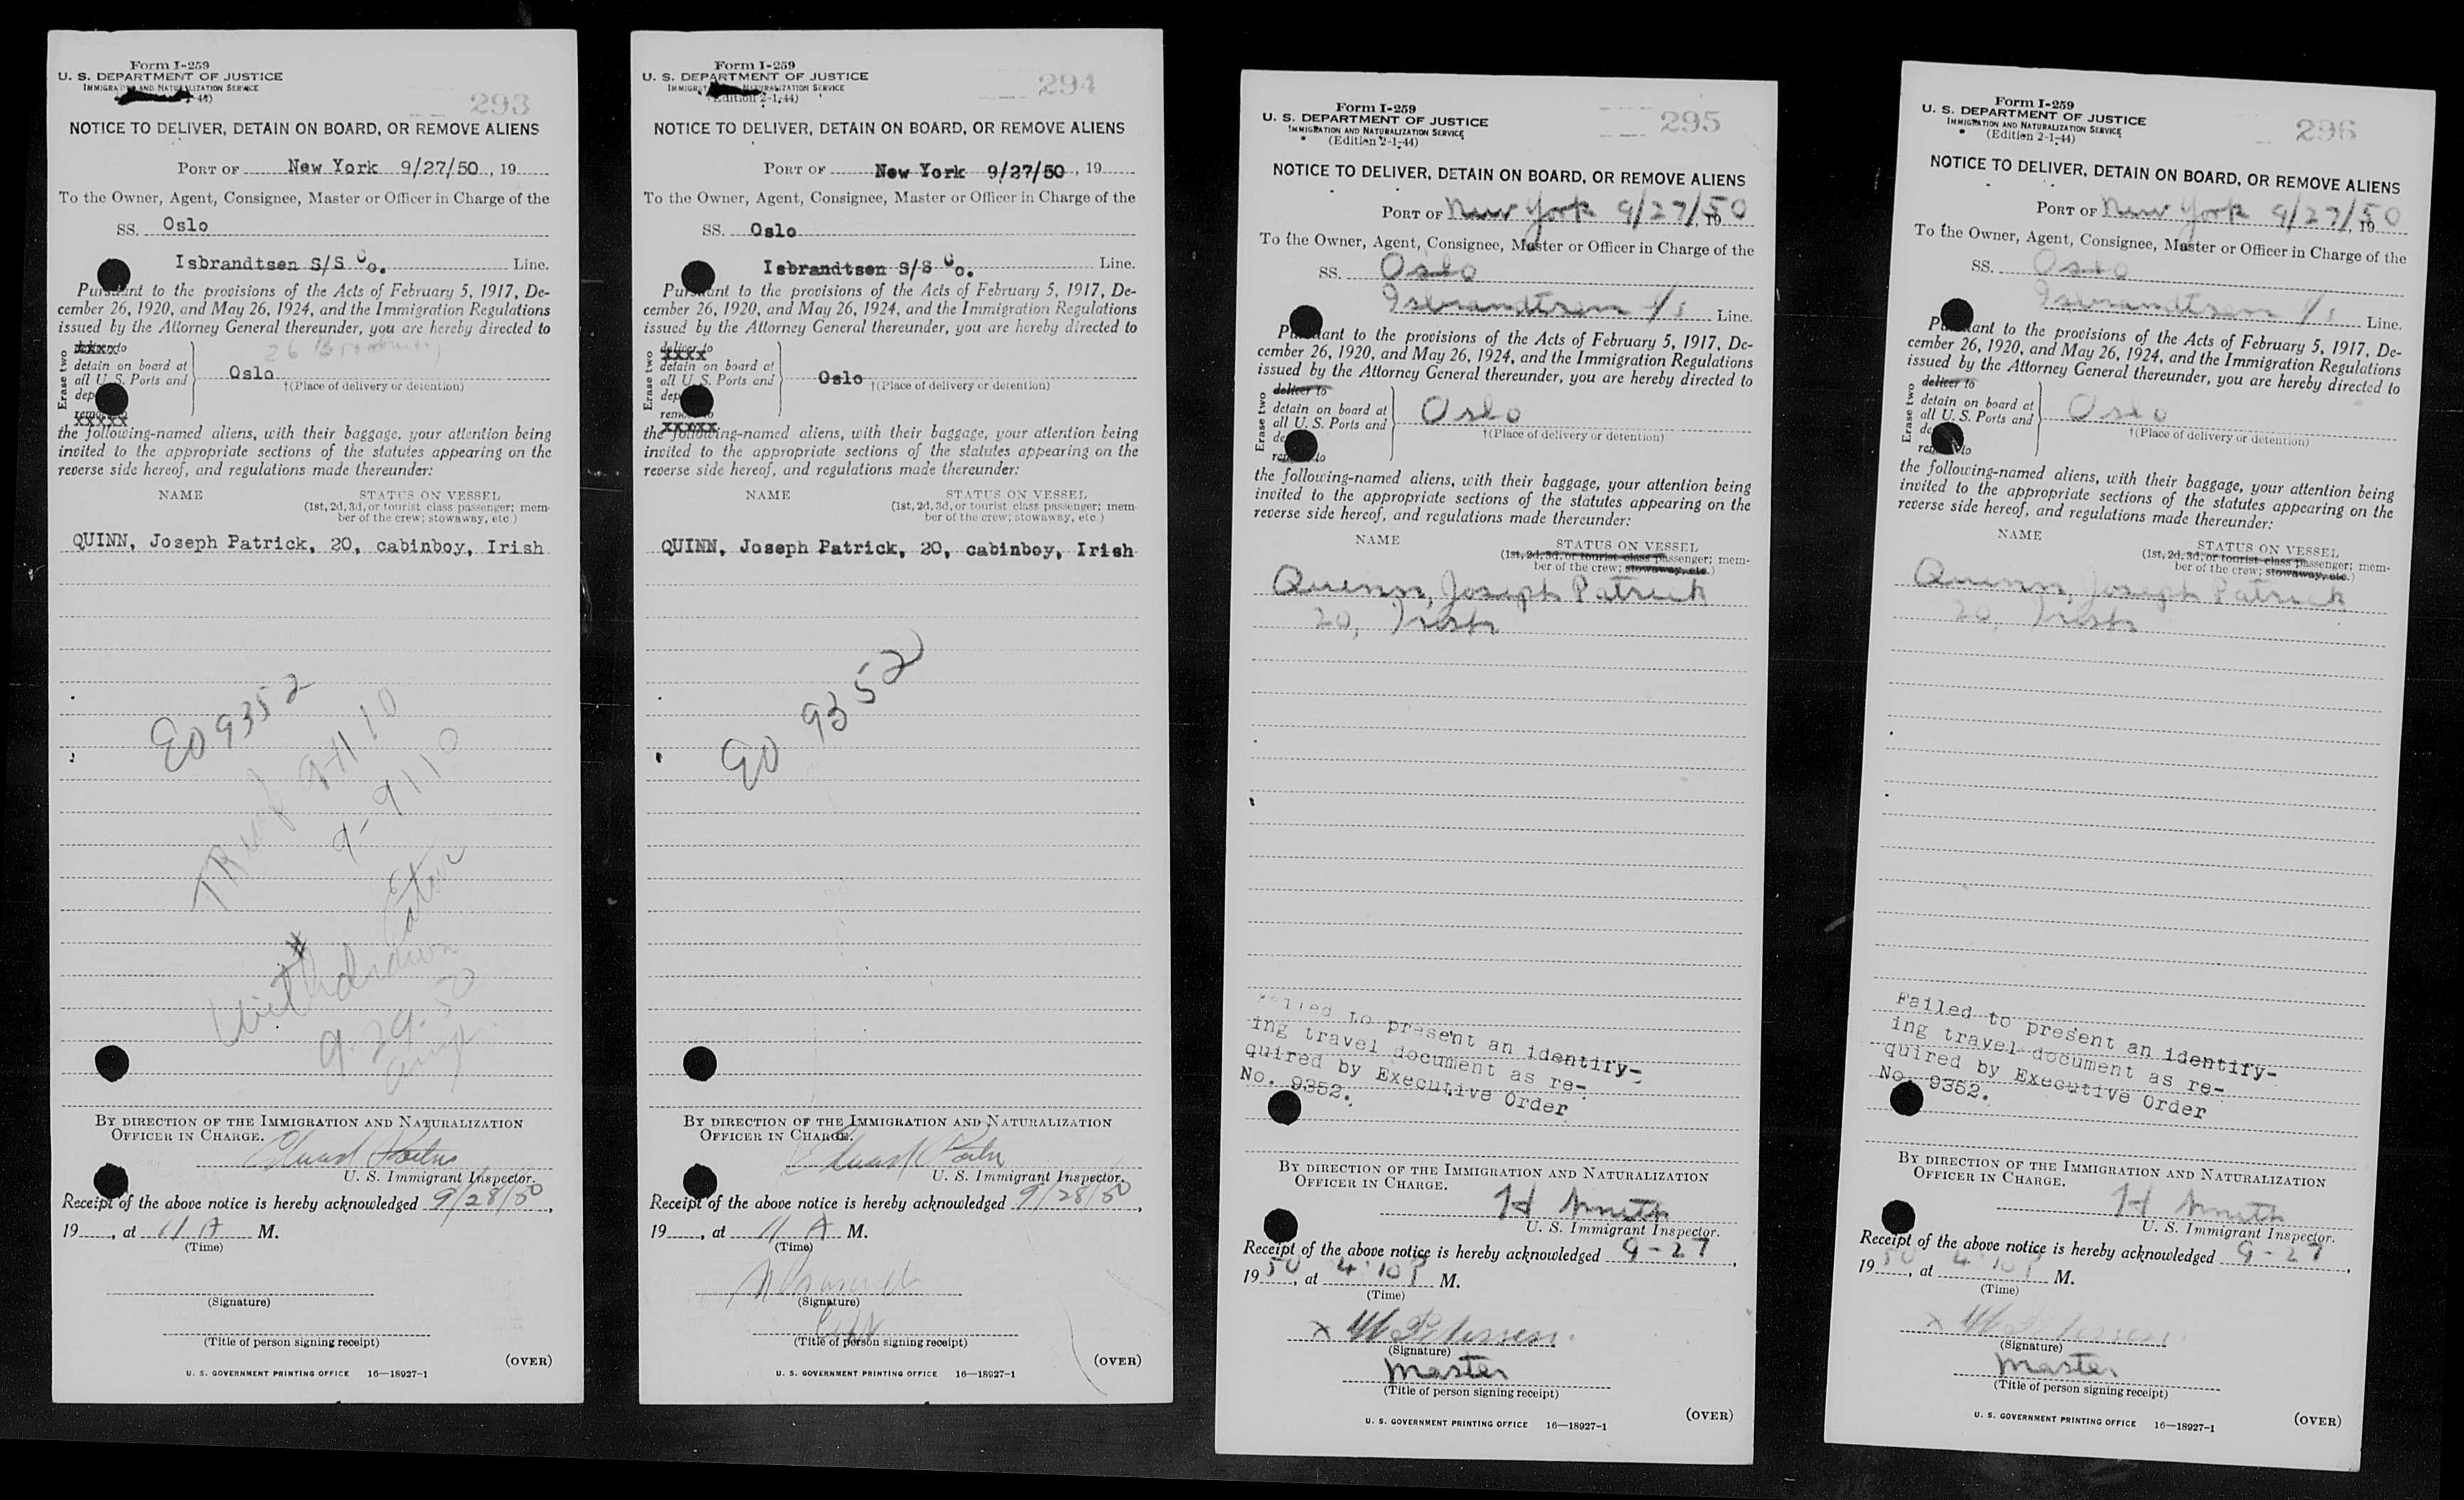 Form I-259
U. S. DEPARTMENT OF JUSTICE
IMMIGRATION AND NATURALIZATION SERVICE
44)
293
NOTICE TO DELIVER, DETAIN ON BOARD, OR REMOVE ALIENS
PORT OF New York 9/27/50, 19
To the Owner, Agent, Consignee, Master or Officer in Charge of the
SS. Oslo
Isbrandtsen S/S Co. Line.
Pursuant to the provisions of the Acts of February 5, 1917, De-
cember 26, 1920, and May 26, 1924, and the Immigration Regulations
issued by the Attorney General thereunder, you are hereby directed to
Erase two
xxxx to
detain on board at
all U. S. Ports and
dep
xxxxx
26 Broadway
Oslo
†(Place of delivery or detention)
the following-named aliens, with their baggage, your attention being
invited to the appropriate sections of the statutes appearing on the
reverse side hereof, and regulations made thereunder:
NAME STATUS ON VESSEL
(1st, 2d, 3d, or tourist class passenger; mem-
ber of the crew; stowaway, etc.)
QUINN, Joseph Patrick, 20, cabinboy, Irish
EO 9352
9-1110
9-9110
Withdrawn
9-29-50
BY DIRECTION OF THE IMMIGRATION AND NATURALIZATION
OFFICER IN CHARGE.
U. S. Immigrant Inspector.
Receipt of the above notice is hereby acknowledged 9/28/50,
19, at 11 A M.
(Time)
(Signature)
(Title of person signing receipt)
(OVER)
U. S. GOVERNMENT PRINTING OFFICE 16—18927-1
Form I-259
U. S. DEPARTMENT OF JUSTICE
IMMIGRATION AND NATURALIZATION SERVICE
(Edition 2-1-44)
294
NOTICE TO DELIVER, DETAIN ON BOARD, OR REMOVE ALIENS
PORT OF New York 9/27/50, 19
To the Owner, Agent, Consignee, Master or Officer in Charge of the
SS. Oslo
Isbrandtsen S/S Co. Line.
Pursuant to the provisions of the Acts of February 5, 1917, De-
cember 26, 1920, and May 26, 1924, and the Immigration Regulations
issued by the Attorney General thereunder, you are hereby directed to
Erase two
deliver to
xxxx
detain on board at
all U. S. Ports and
dep
remove to
xxxxx
Oslo
†(Place of delivery or detention)
the following-named aliens, with their baggage, your attention being
invited to the appropriate sections of the statutes appearing on the
reverse side hereof, and regulations made thereunder:
NAME STATUS ON VESSEL
(1st, 2d, 3d, or tourist class passenger; mem-
ber of the crew; stowaway, etc.)
QUINN, Joseph Patrick, 20, cabinboy, Irish
EO 9352
BY DIRECTION OF THE IMMIGRATION AND NATURALIZATION
OFFICER IN CHARGE.
U. S. Immigrant Inspector.
Receipt of the above notice is hereby acknowledged 9/28/50,
19, at 11 A M.
(Time)
(Signature)
(Title of person signing receipt)
(OVER)
U. S. GOVERNMENT PRINTING OFFICE 16—18927-1
Form I-259
U. S. DEPARTMENT OF JUSTICE
IMMIGRATION AND NATURALIZATION SERVICE
(Edition 2-1-44)
295
NOTICE TO DELIVER, DETAIN ON BOARD, OR REMOVE ALIENS
PORT OF New York 9/27/50, 19
To the Owner, Agent, Consignee, Master or Officer in Charge of the
SS. Oslo
Isbrandtsen S/S Line.
Pursuant to the provisions of the Acts of February 5, 1917, De-
cember 26, 1920, and May 26, 1924, and the Immigration Regulations
issued by the Attorney General thereunder, you are hereby directed to
Erase two
deliver to
detain on board at
all U. S. Ports and
de
remove to
Oslo
†(Place of delivery or detention)
the following-named aliens, with their baggage, your attention being
invited to the appropriate sections of the statutes appearing on the
reverse side hereof, and regulations made thereunder:
NAME STATUS ON VESSEL
(1st, 2d, 3d, or tourist class passenger; mem-
ber of the crew; stowaway, etc.)
Quinn, Joseph Patrick
20, Irish
Failed to present an identify-
ing travel document as re-
quired by Executive Order
No. 9352.
BY DIRECTION OF THE IMMIGRATION AND NATURALIZATION
OFFICER IN CHARGE.
H Smith
U. S. Immigrant Inspector.
Receipt of the above notice is hereby acknowledged 9-27,
19 50, at 4:10 P M.
(Time)
x W Petersen
(Signature)
Master
(Title of person signing receipt)
(OVER)
U. S. GOVERNMENT PRINTING OFFICE 16—18927-1
Form I-259
U. S. DEPARTMENT OF JUSTICE
IMMIGRATION AND NATURALIZATION SERVICE
(Edition 2-1-44)
296
NOTICE TO DELIVER, DETAIN ON BOARD, OR REMOVE ALIENS
PORT OF New York 9/27/50, 19
To the Owner, Agent, Consignee, Master or Officer in Charge of the
SS. Oslo
Isbrandtsen S/S Line.
Pursuant to the provisions of the Acts of February 5, 1917, De-
cember 26, 1920, and May 26, 1924, and the Immigration Regulations
issued by the Attorney General thereunder, you are hereby directed to
Erase two
deliver to
detain on board at
all U. S. Ports and
de
remove to
Oslo
†(Place of delivery or detention)
the following-named aliens, with their baggage, your attention being
invited to the appropriate sections of the statutes appearing on the
reverse side hereof, and regulations made thereunder:
NAME STATUS ON VESSEL
(1st, 2d, 3d, or tourist class passenger; mem-
ber of the crew; stowaway, etc.)
Quinn, Joseph Patrick
20, Irish
Failed to present an identify-
ing travel document as re-
quired by Executive Order
No. 9352.
BY DIRECTION OF THE IMMIGRATION AND NATURALIZATION
OFFICER IN CHARGE.
H Smith
U. S. Immigrant Inspector.
Receipt of the above notice is hereby acknowledged 9-27,
19 50, at 4:10 P M.
(Time)
x W Petersen
(Signature)
Master
(Title of person signing receipt)
(OVER)
U. S. GOVERNMENT PRINTING OFFICE 16—18927-1